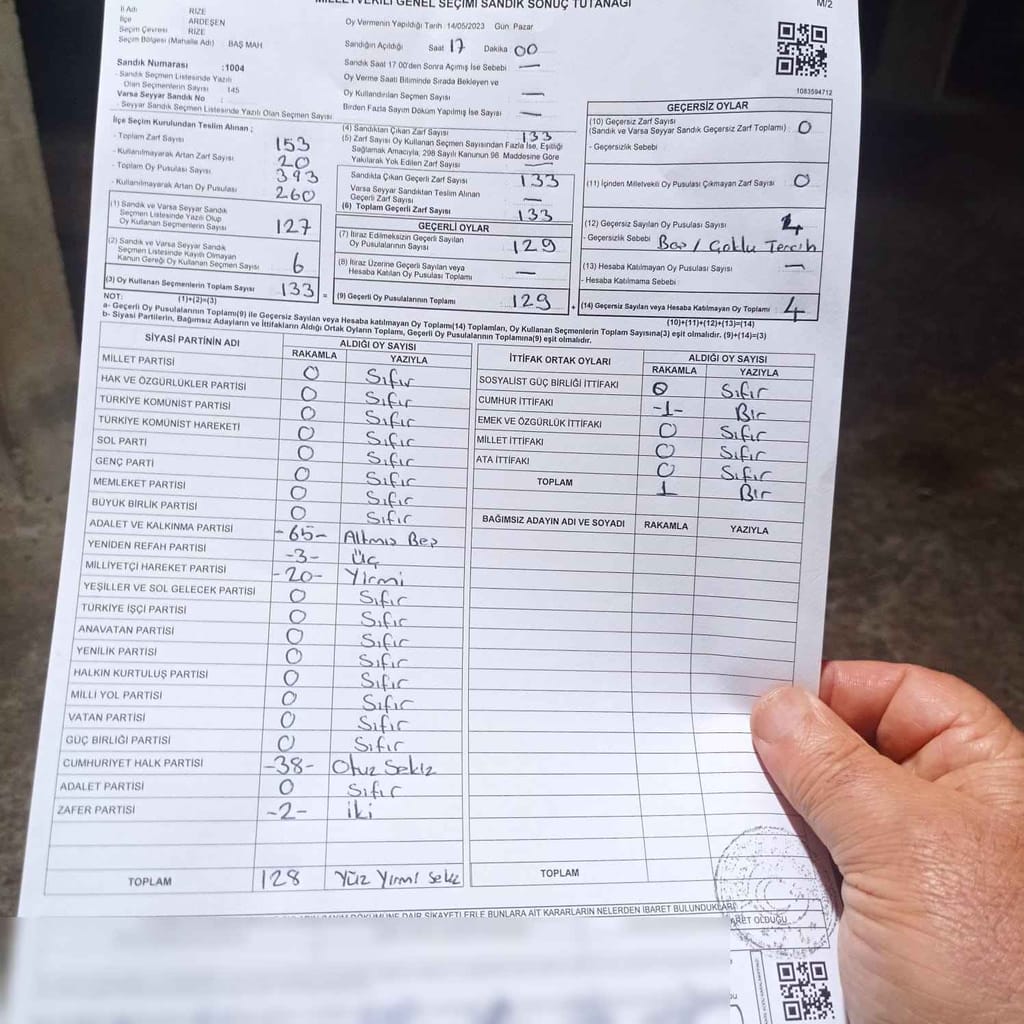 MİLLETVEKİLİ GENEL SEÇİMİ SANDIK SONUÇ TUTANAĞI
M/2
İl Adı RİZE
İlçe ARDEŞEN
Seçim Çevresi RİZE
Seçim Bölgesi (Mahalle Adı) BAŞ MAH
Sandık Numarası :1004
- Sandık Seçmen Listesinde Yazılı
Olan Seçmenlerin Sayısı 145
Varsa Seyyar Sandık No :
- Seyyar Sandık Seçmen Listesinde Yazılı Olan Seçmen Sayısı
Oy Vermenin Yapıldığı Tarih 14/05/2023 Gün Pazar
Sandığın Açıldığı Saat 17 Dakika 00
Sandık Saat 17 00'den Sonra Açımış İse Sebebi —
Oy Verme Saati Bitiminde Sırada Bekleyen ve
Oy Kullandırılan Seçmen Sayısı —
Birden Fazla Sayım Döküm Yapılmış İse Sayısı —
1083594712
İlçe Seçim Kurulundan Teslim Alınan ;
- Toplam Zarf Sayısı 153
- Kullanılmayarak Artan Zarf Sayısı 20
- Toplam Oy Pusulası Sayısı 393
- Kullanılmayarak Artan Oy Pusulası 260
(1) Sandık ve Varsa Seyyar Sandık
Seçmen Listesinde Yazılı Olup
Oy Kullanan Seçmenlerin Sayısı 127
(2) Sandık ve Varsa Seyyar Sandık
Seçmen Listesinde Kayıtlı Olmayan
Kanun Gereği Oy Kullanan Seçmen Sayısı 6
(3) Oy Kullanan Seçmenlerin Toplam Sayısı 133 =
(1)+(2)=(3)
(4) Sandıktan Çıkan Zarf Sayısı 133
(5) Zarf Sayısı Oy Kullanan Seçmen Sayısından Fazla İse, Eşitliği
Sağlamak Amacıyla, 298 Sayılı Kanunun 98. Maddesine Göre
Yakılarak Yok Edilen Zarf Sayısı —
Sandıkta Çıkan Geçerli Zarf Sayısı 133
Varsa Seyyar Sandıktan Teslim Alınan
Geçerli Zarf Sayısı —
(6) Toplam Geçerli Zarf Sayısı 133
GEÇERLİ OYLAR
(7) İtiraz Edilmeksizin Geçerli Sayılan
Oy Pusulalarının Sayısı 129
(8) İtiraz Üzerine Geçerli Sayılan veya
Hesaba Katılan Oy Pusulası Toplamı —
(9) Geçerli Oy Pusulalarının Toplamı 129 +
GEÇERSİZ OYLAR
(10) Geçersiz Zarf Sayısı
(Sandık ve Varsa Seyyar Sandık Geçersiz Zarf Toplamı) 0
- Geçersizlik Sebebi
(11) İçinden Milletvekili Oy Pusulası Çıkmayan Zarf Sayısı 0
(12) Geçersiz Sayılan Oy Pusulası Sayısı 4
- Geçersizlik Sebebi Boş / Çoklu Tercih
(13) Hesaba Katılmayan Oy Pusulası Sayısı —
- Hesaba Katılmama Sebebi
(14) Geçersiz Sayılan veya Hesaba Katılmayan Oy Toplamı 4
(10)+(11)+(12)+(13)=(14)
NOT:
a- Geçerli Oy Pusulalarının Toplamı(9) ile Geçersiz Sayılan veya Hesaba katılmayan Oy Toplamı(14) Toplamları, Oy Kullanan Seçmenlerin Toplam Sayısına(3) eşit olmalıdır. (9)+(14)=(3)
b- Siyasi Partilerin, Bağımsız Adayların ve İttifakların Aldığı Ortak Oyların Toplamı, Geçerli Oy Pusulalarının Toplamına(9) eşit olmalıdır.
SİYASİ PARTİNİN ADI ALDIĞI OY SAYISI
RAKAMLA YAZIYLA
MİLLET PARTİSİ 0 Sıfır
HAK VE ÖZGÜRLÜKLER PARTİSİ 0 Sıfır
TÜRKİYE KOMÜNİST PARTİSİ 0 Sıfır
TÜRKİYE KOMÜNİST HAREKETİ 0 Sıfır
SOL PARTİ 0 Sıfır
GENÇ PARTİ 0 Sıfır
MEMLEKET PARTİSİ 0 Sıfır
BÜYÜK BİRLİK PARTİSİ 0 Sıfır
ADALET VE KALKINMA PARTİSİ -65- Altmış Beş
YENİDEN REFAH PARTİSİ -3- Üç
MİLLİYETÇİ HAREKET PARTİSİ -20- Yirmi
YEŞİLLER VE SOL GELECEK PARTİSİ 0 Sıfır
TÜRKİYE İŞÇİ PARTİSİ 0 Sıfır
ANAVATAN PARTİSİ 0 Sıfır
YENİLİK PARTİSİ 0 Sıfır
HALKIN KURTULUŞ PARTİSİ 0 Sıfır
MİLLİ YOL PARTİSİ 0 Sıfır
VATAN PARTİSİ 0 Sıfır
GÜÇ BİRLİĞİ PARTİSİ 0 Sıfır
CUMHURİYET HALK PARTİSİ -38- Otuz Sekiz
ADALET PARTİSİ 0 Sıfır
ZAFER PARTİSİ -2- İki
TOPLAM 128 Yüz Yirmi Sekiz
İTTİFAK ORTAK OYLARI ALDIĞI OY SAYISI
RAKAMLA YAZIYLA
SOSYALİST GÜÇ BİRLİĞİ İTTİFAKI 0 Sıfır
CUMHUR İTTİFAKI -1- Bir
EMEK VE ÖZGÜRLÜK İTTİFAKI 0 Sıfır
MİLLET İTTİFAKI 0 Sıfır
ATA İTTİFAKI 0 Sıfır
TOPLAM 1 Bir
BAĞIMSIZ ADAYIN ADI VE SOYADI RAKAMLA YAZIYLA
TOPLAM
DÖKÜMÜNE DAİR ŞİKAYETLERLE BUNLARA AİT KARARLARIN NELERDEN İBARET BULUNDUKLARI
ARET OLDUĞU